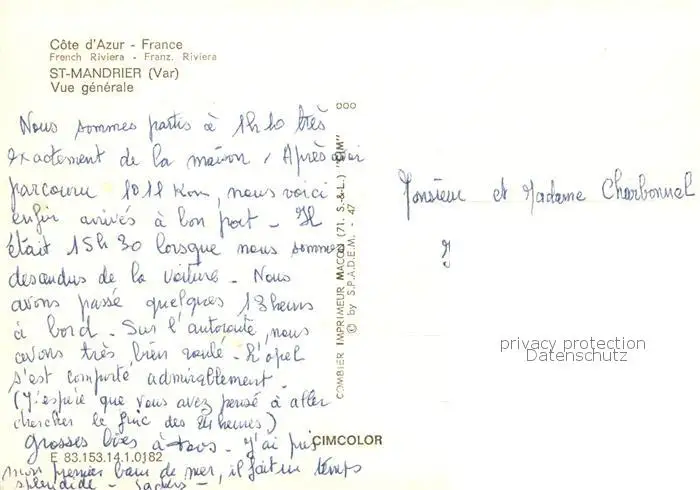 Côte d'Azur - France
French Riviera - Franz. Riviera
ST-MANDRIER (Var)
Vue générale
Nous sommes partis à 1h10 très
exactement de la maison, Après avoir
parcouru 1011 Km, nous voici
enfin arrivés à bon port - Il
était 15h30 lorsque nous sommes
descendus de la voiture - Nous
avons passé quelques 13 heures
à bord - Sur l'autoroute, nous
avons très bien roulé - L'opel
s'est comporté admirablement.
(J'espère que vous avez pensé à aller
chercher le fric des 24 heures)
Grosses bises à tous - J'ai pris
mon premier bain de mer, il fait un temps
splendide -
COMBIER IMPRIMEUR MACON (71. S.-&-L.) "CIM"
© by S.P.A.D.E.M. - 47
Monsieur et Madame Charbonnel
privacy protection
Datenschutz
CIMCOLOR
E 83.153.14.1.0182